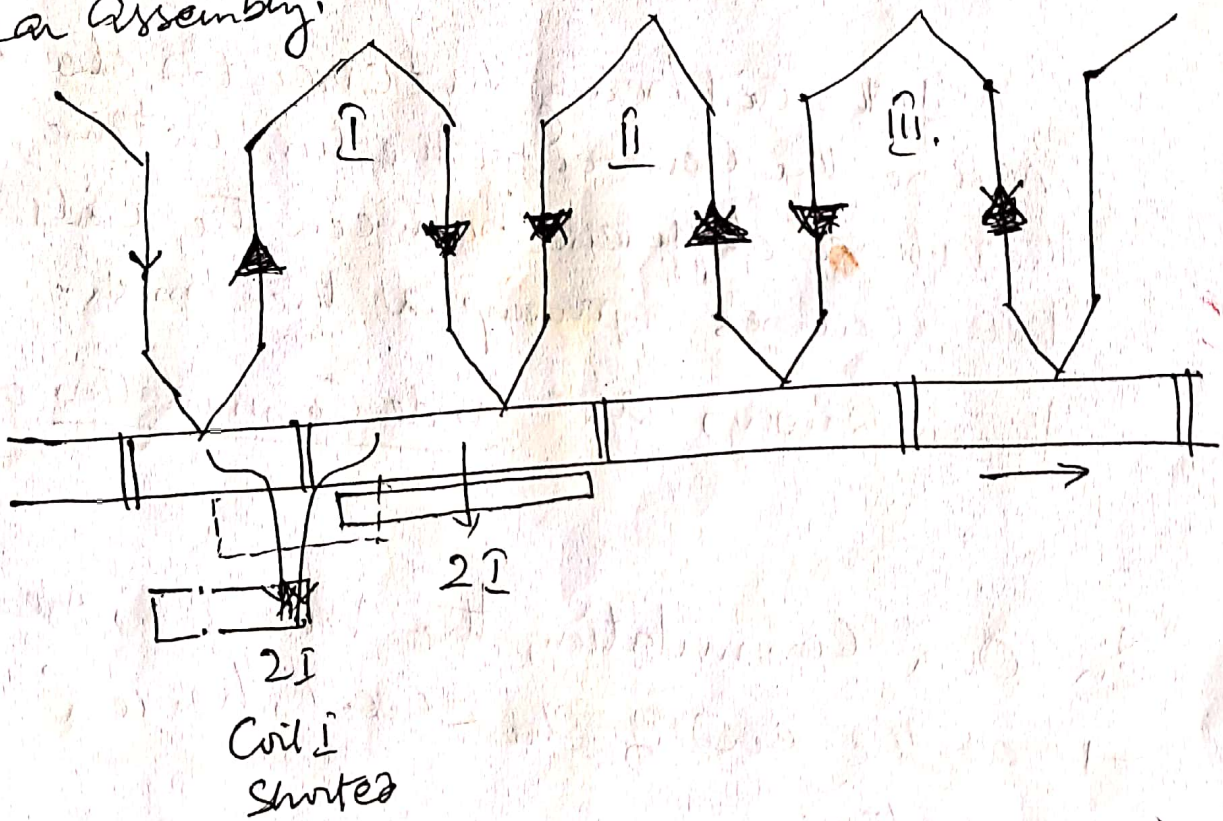 an Assembly.
I II III.
2I
2I
Coil I
Shorted